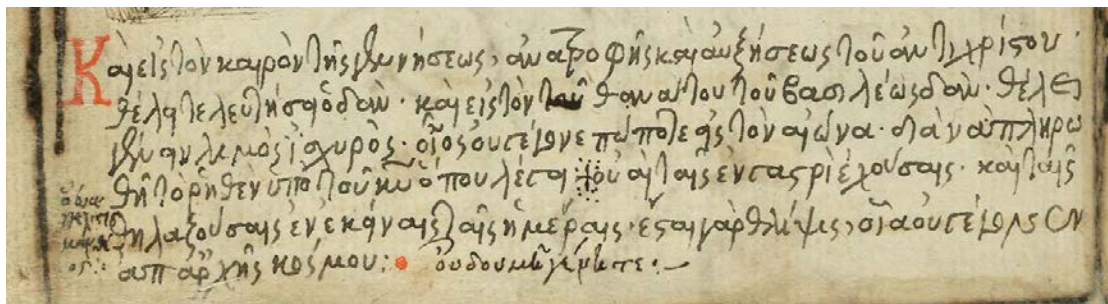 Καὶ εἰς τὸν καιρὸν τῆς γεννήσεως, ἀνατροφῆς καὶ αὐξήσεως τοῦ ἀντιχρίστου·
θέλει τελευτήσει ὁ δάν· καὶ εἰς τὸν θάνατον τοῦ βασιλέως δάν· θέλει
γένῃ λιμὸς ἰσχυρὸς· οἷος οὐ γέγονε πώποτε εἰς τὸν αἰῶνα· διὰ νὰ ἀπληρω
θῇ τὸ ῥηθὲν ὑπὸ τοῦ κυ ὁποῦ λέγει οὐαὶ ταῖς ἐν γαστρὶ ἐχούσαις· καὶ ταῖς
θηλαζούσαις ἐν ἐκείναις ταῖς ἡμέραις· ἔσται γὰρ θλίψις, οἵα οὐ γέγονεν
ἀπ' ἀρχῆς κόσμου: